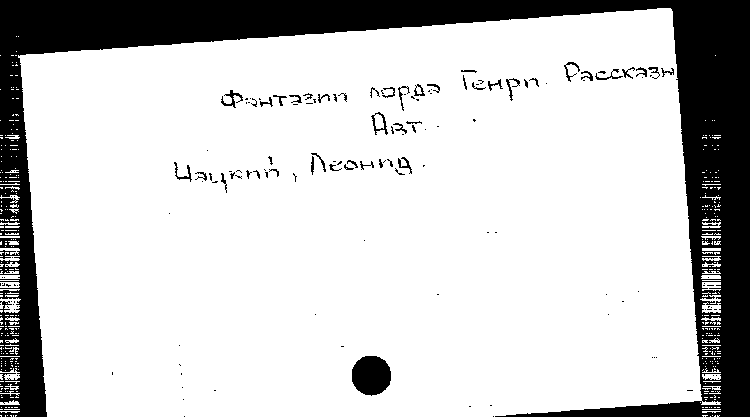 Фантазии лорда Генри. Рассказы
Авт.
Чацкий, Леонид.